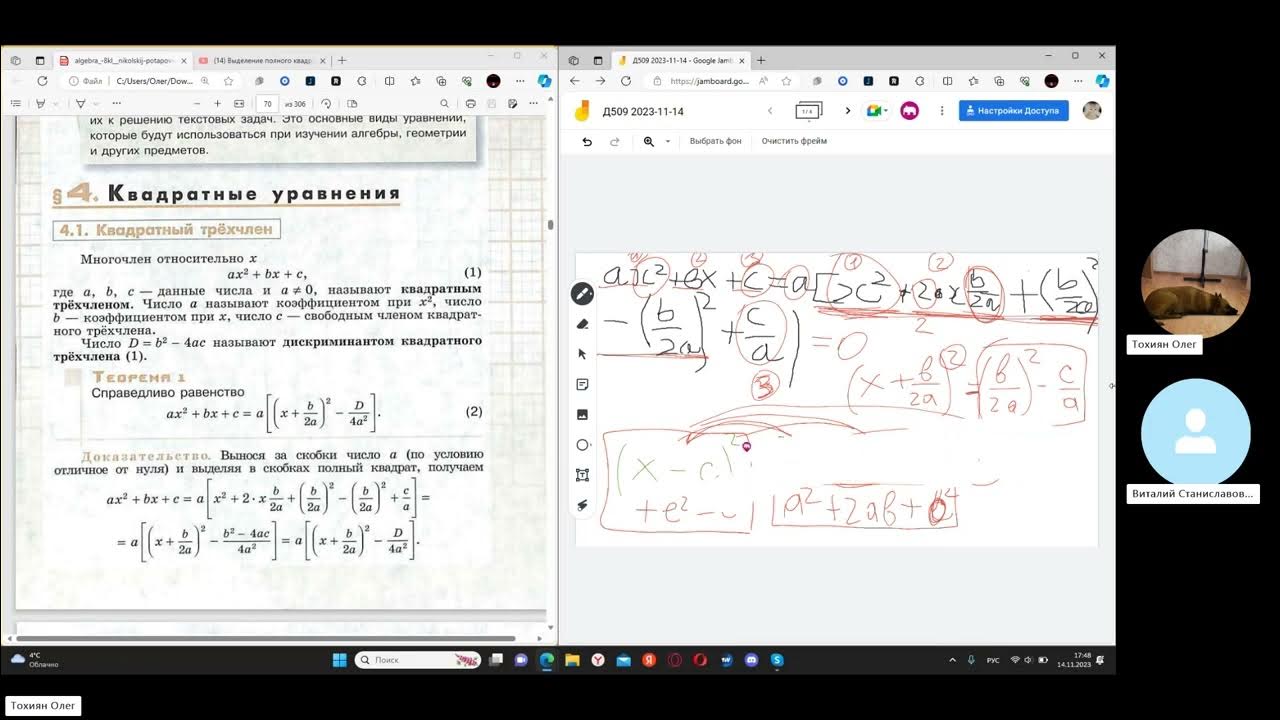 algebra_-8kl_nikolskij-potapov-
(14) Выделение полного квадр
Файл
C:/Users/Олег/Dow...
70 из 306
их к решению текстовых задач. Это основные виды уравнений,
которые будут использоваться при изучении алгебры, геометрии
и других предметов.
§ 4. Квадратные уравнения
4.1. Квадратный трёхчлен
Многочлен относительно x
ax² + bx + c, (1)
где a, b, c — данные числа и a ≠ 0, называют квадратным
трёхчленом. Число a называют коэффициентом при x², число
b — коэффициентом при x, число c — свободным членом квадрат-
ного трёхчлена.
Число D = b² − 4ac называют дискриминантом квадратного
трёхчлена (1).
Теорема 1
Справедливо равенство
ax² + bx + c = a[(x + b/2a)² − D/4a²]. (2)
Доказательство. Вынося за скобки число a (по условию
отличное от нуля) и выделяя в скобках полный квадрат, получаем
ax² + bx + c = a[x² + 2 · x b/2a + (b/2a)² − (b/2a)² + c/a] =
= a[(x + b/2a)² − b² − 4ac/4a²] = a[(x + b/2a)² − D/4a²].
Д509 2023-11-14 - Google Jamb
https://jamboard.go...
Д509 2023-11-14
1/4
Настройки Доступа
Выбрать фон
Очистить фрейм
(1) (2) (3) (1) (2)
ax² + bx + c = a[x² + 2x b/2a + (b/2a)²
− (b/2a)² + c/a] = 0
2
3
(x + b/2a)² = (b/2a)² − c/a
(x − c)²
a² + 2ab +
Тохиян Олег
Виталий Станиславов...
4°C
Облачно
Поиск
РУС
17:48
14.11.2023
Тохиян Олег